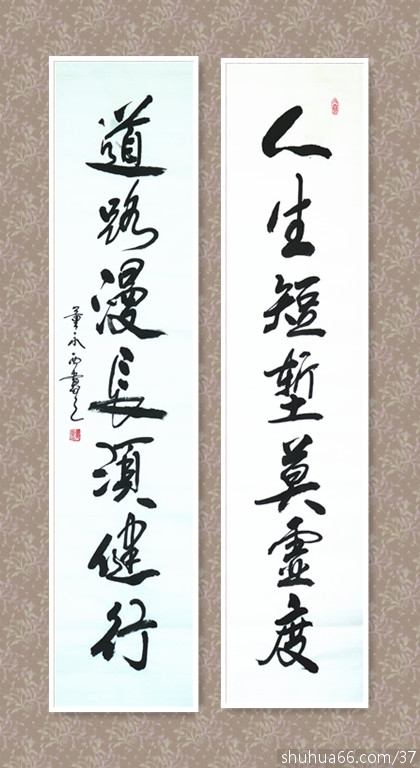 人生短暫莫虛度
道路漫長須健行
董永西書之
shuhua66.com/37